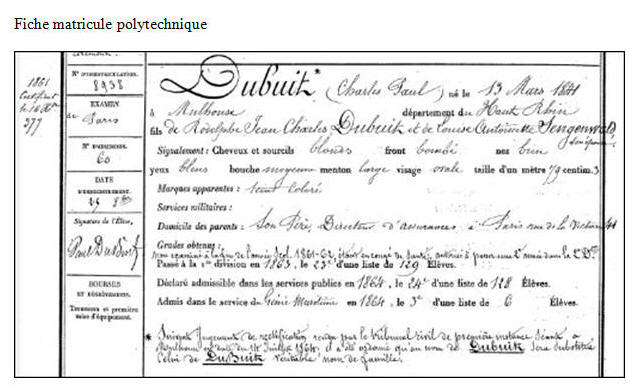 Fiche matricule polytechnique
1861
377
N° D'IMMATRICULATION.
8958
EXAMEN
de Paris
N° D'EXAMEN.
60
DATE
Signature de l'Élève,
BOURSES
ET DÉGRÈVEMENS.
Trousseau et première
mise d'équipement.
Dubuit* (Charles Paul) né le 13 Mars 1841
à Mulhouse département du Haut Rhin
fils de Rodolphe Jean Charles Dubuit et de Louise Antoinette Sengenwald,
son épouse
Signalement: Cheveux et sourcils blonds front bombé nez bien
yeux bleus bouche moyenne menton large visage ovale taille d'un mètre 79 centim.s
Marques apparentes: teint coloré
Services militaires:
Domicile des parents: Son Père, Directeur d'assurances, à Paris rue de la Victoire 41
Grades obtenus:
non examiné à la fin de l'année scol. 1861-62, étant en congé de santé, autorisé à passer une 2e année dans la 2e Don
Passé à la 1re division en 1863, le 23e d'une liste de 129 Élèves.
Déclaré admissible dans les services publics en 1864, le 24e d'une liste de 128 Élèves.
Admis dans le service du Génie Maritime en 1864, le 3e d'une liste de 6 Élèves.
* Suivant Jugement de rectification rendu par le tribunal civil de première instance séant à
Mulhouse en date du Juillet 1864, il a été ordonné qu'au nom de Dubuit sera substitué
Celui de DuBuit véritable nom de famille.